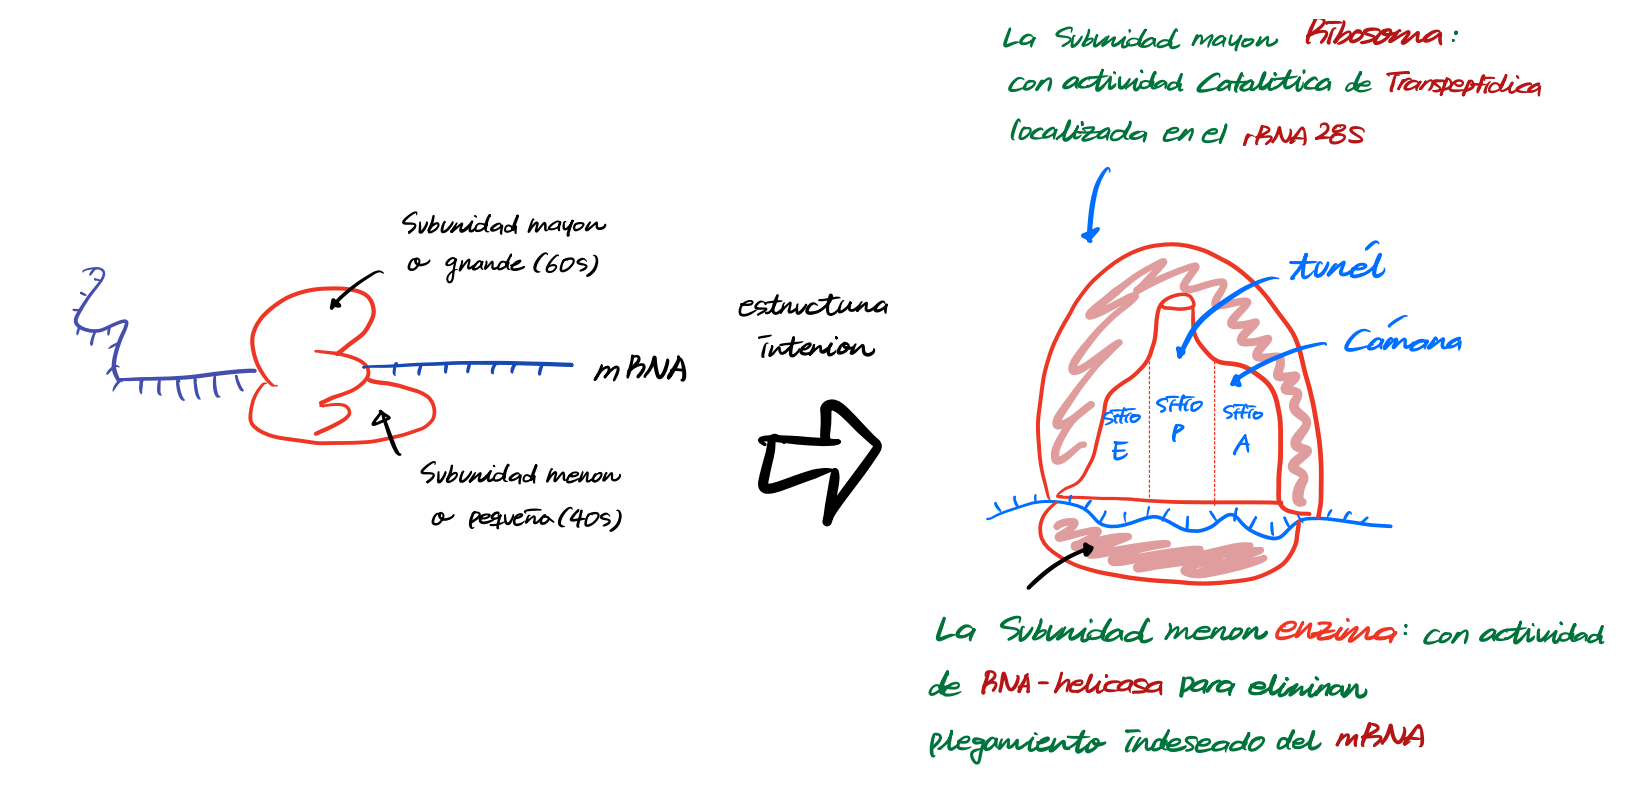 La Subunidad mayor Ribosoma:
con actividad Catalitica de Transpeptídica
localizada en el rRNA 28S
Subunidad mayor
o grande (60s)
mRNA
Subunidad menor
o pequeña (40s)
estructura
interior
tunél
Cámara
sitio
E
sitio
P
sitio
A
La Subunidad menor enzima: con actividad
de RNA-helicasa para eliminar
plegamiento indeseado del mRNA